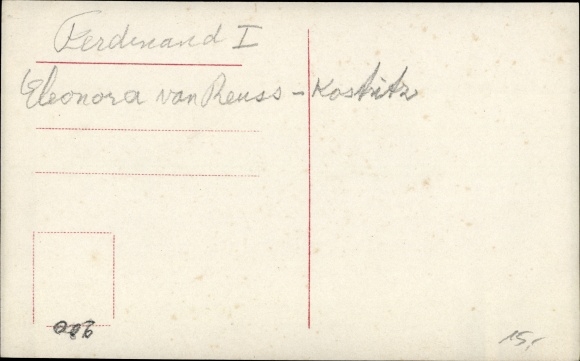 Ferdinand I
Eleonora van Reuss - Kostritz
15,-